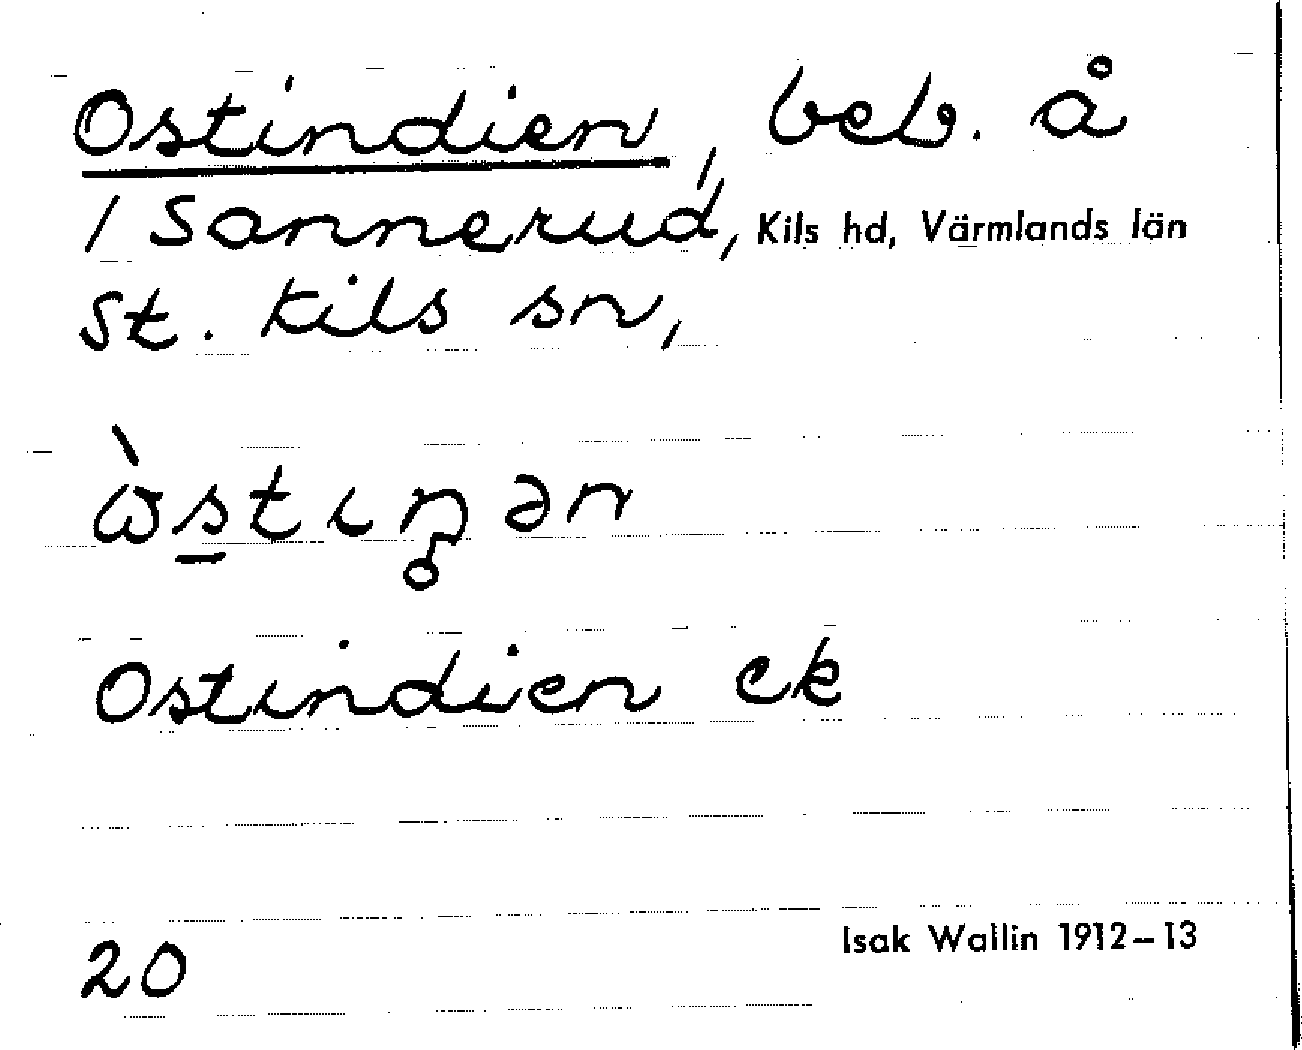 Ostindien, beb. å
/ Sannerud, Kils hd, Värmlands län
St. Kils sn,
ɷ̀s̠tɩn̥ən
Ostindien ek
20
Isak Wallin 1912–13